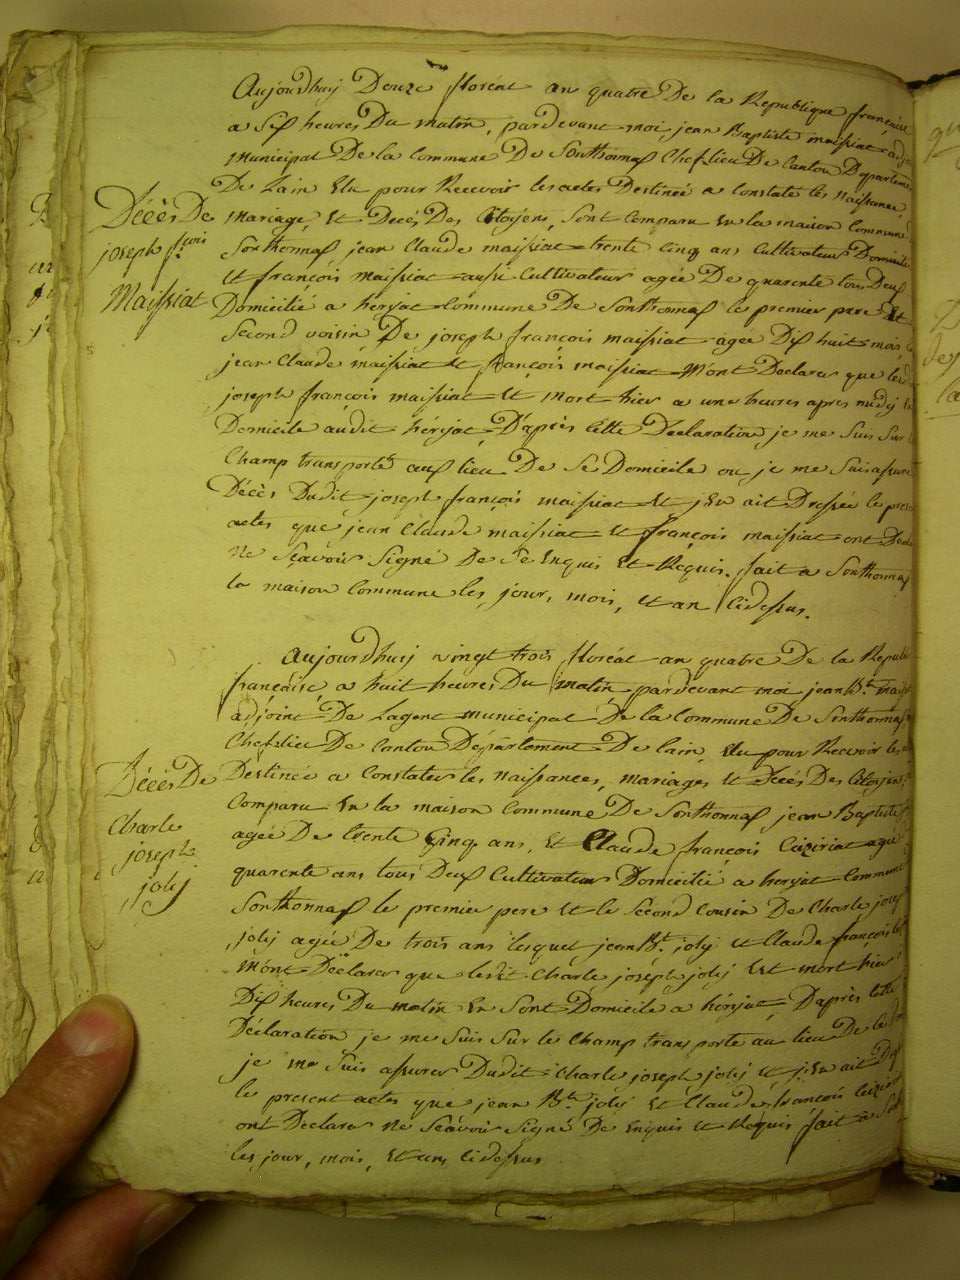 Aujourdhuij Douze floréal an quatre De la Republique française
a Sis heures Du matin, pardevant moi jean Baptiste maissiat adj
Municipal De la Commune De Sonthonnas Chef lieu De Canton Departeme
De Lain Elu pour Recevoir les actes Destinée a Constaté les Naissance,
Décès De
joseph fçois
Maissiat
Mariage, Et Decés Des Citoyens, Sont Comparu En la maison Commune
Sonthonnas jean Claude maissiat trente Cinq ans Cultivateur Domicilié
Et françois maissiat aussi Cultivateur agée De quarente tous Deus
Domicilié a héryat Commune De Sonthonnas le premier pere Et
Second voisin De joseph françois maissiat agée Dis huit mois,
jean Claude maissiat Et françois maissiat M'ont Declarer que led
joseph françois maissiat Et mort hier a une heures apres midij
Domicile audit héryat D'après Cette Déclaration je me Suis Sur
Champ transporté aus lieu De Se Domicile ou je me Suis assuré
Décès Dudit joseph françois maissiat Et j'En ait Dressée le pres
actes que jean Claude maissiat Et françois maissiat ont Decla
Ne Sçavoir Signé De Ce Enquis Et Requis. fait a Sonthonnas
la maison Commune les jour, mois, Et an Cidessus.
Aujourdhuij vingt trois floréal an quatre De la Republi
française, a huit heures Du matin pardevant moi jean Bte mais
adjoint De Lagent municipal De la Commune De Sonthonnas
Chef lieu De Canton Département De Lain, Elu pour Recevoir les
Décès De
Charle
joseph
jolij
Destinée a Constater les Naissances, Mariages Et Décès Des Citoyens,
Comparu En la maison Commune De Sonthonnas jean Baptiste
agée De trente Cinq ans, Et Claude françois Cuiziriat agée
quarente ans tous Deus Cultivateur Domicilié a héryat Commune
Sonthonnas le premier pere Et le Second Cousin De Charle josep
jolij agée De trois ans lesquel jean Bt. jolij Et Claude françois
M'ont Déclarer que ledit Charle joséph jolij Est mort hier
Dis heures Du matin En Sont Domicile a héryat, D'après Cette
Déclaration je me Suis Sur le Champ transporté au lieu De
je me Suis assurer Dudit Charle joseph jolij Et j'En ait
le present actes que jean Bte jolij Et Claude françois
ont Declarer Ne Sçavoir Signé De Enquis Et Requis fait a
les jour, mois, Et an, Cidessus